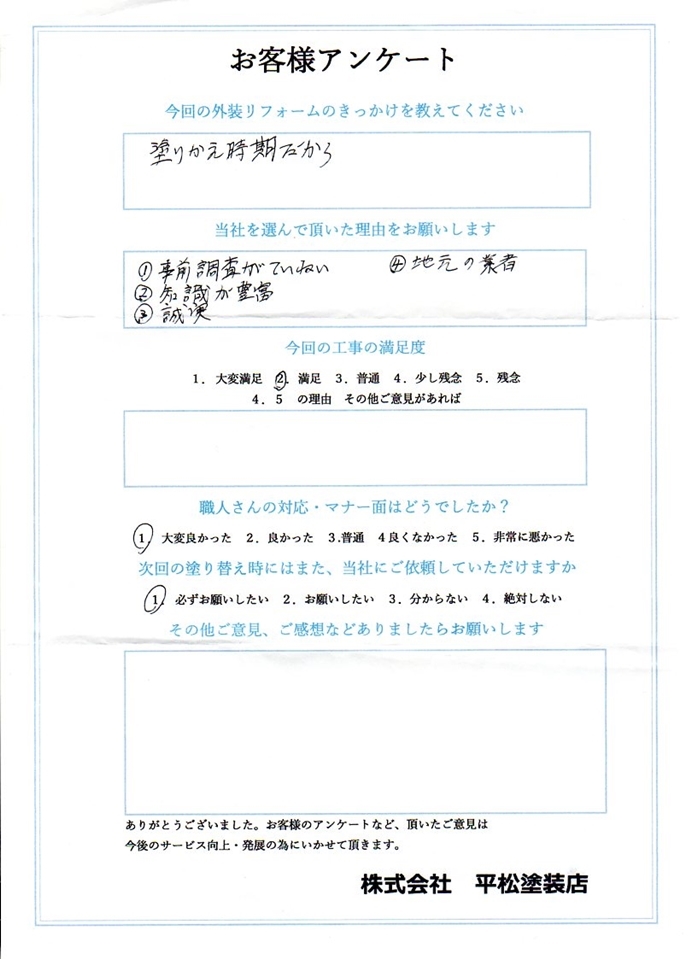 お客様アンケート
今回の外装リフォームのきっかけを教えてください
塗りかえ時期だから
当社を選んで頂いた理由をお願いします
① 事前調査がていねい ④ 地元の業者
② 知識が豊富
③ 誠実
今回の工事の満足度
1. 大変満足 2. 満足 3. 普通 4. 少し残念 5. 残念
4. 5 の理由 その他ご意見があれば
職人さんの対応・マナー面はどうでしたか？
1. 大変良かった 2. 良かった 3.普通 4良くなかった 5. 非常に悪かった
次回の塗り替え時にはまた、当社にご依頼していただけますか
1. 必ずお願いしたい 2. お願いしたい 3. 分からない 4. 絶対しない
その他ご意見、ご感想などありましたらお願いします
ありがとうございました。お客様のアンケートなど、頂いたご意見は
今後のサービス向上・発展の為にいかせて頂きます。
株式会社 平松塗装店